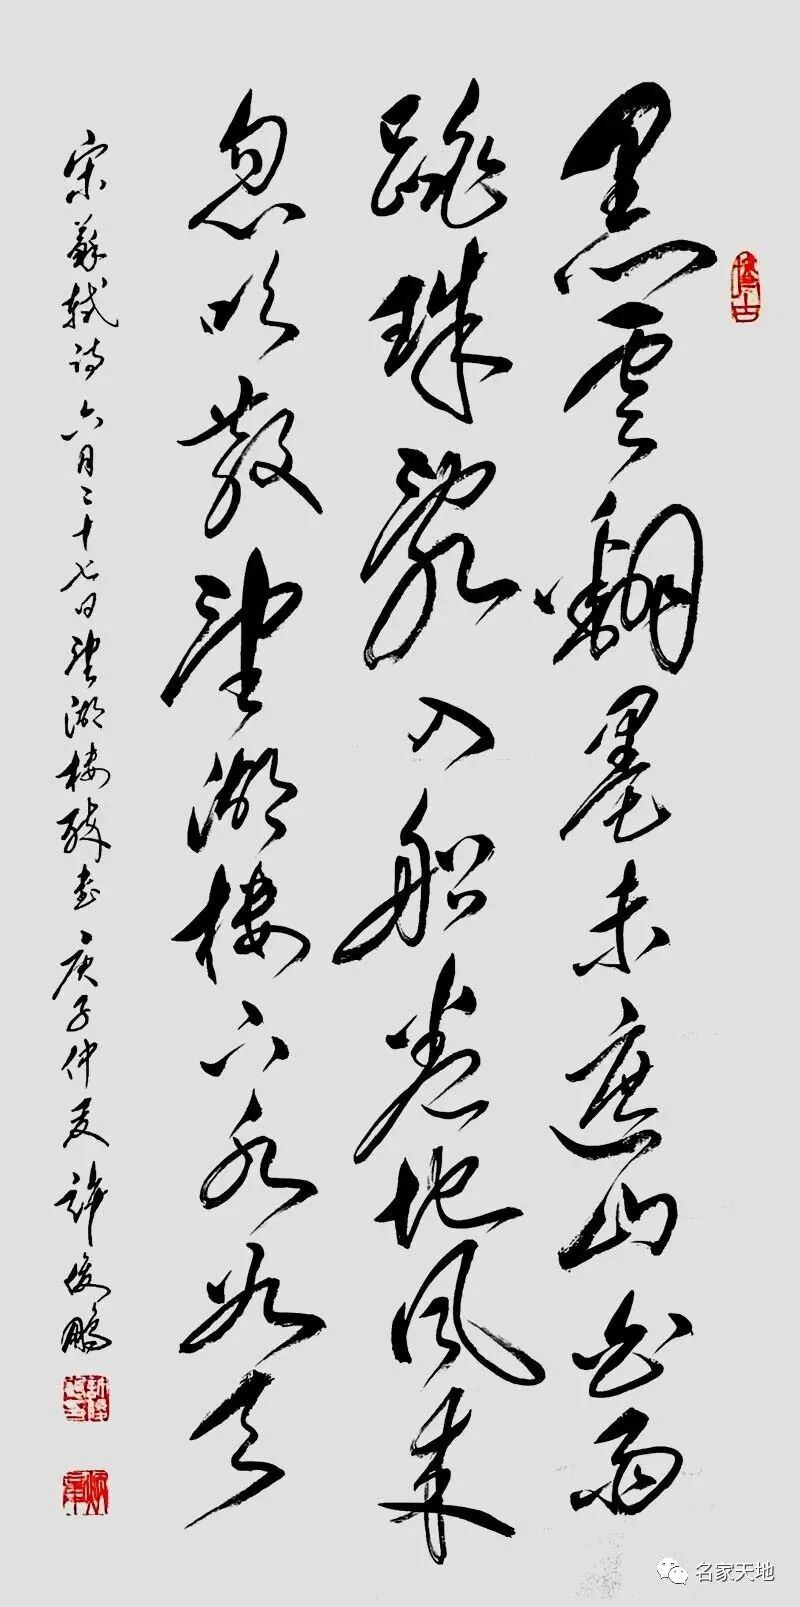 黑云翻墨未遮山白雨
跳珠亂入船卷地风来
忽吹散望湖樓下水如天
宋蘇轼诗六月二十七日望湖樓醉書庚子仲夏許俊鹏
名家天地